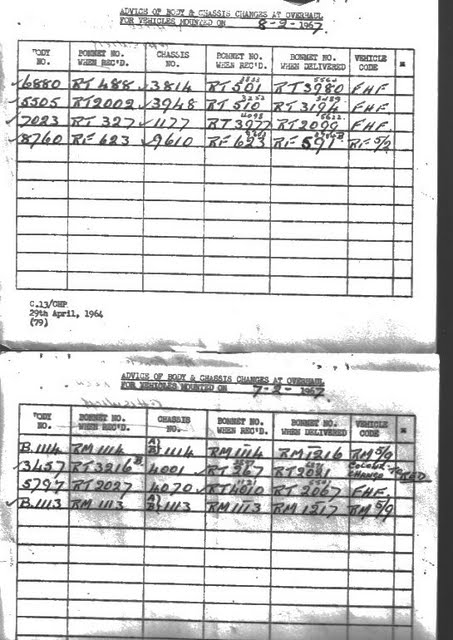 ADVICE OF BODY & CHASSIS CHANGES AT OVERHAUL
FOR VEHICLES MOUNTED ON 8-2-1967
BODY NO. BONNET NO. WHEN REC'D. CHASSIS NO. BONNET NO. WHEN REC'D. BONNET NO. WHEN DELIVERED VEHICLE CODE
✓6880 RT 488 ✓3814 RT 501 RT3980 FHF
✓5505 RT2002 ✓3948 RT 510 RT3194 FHF.
✓7023 RT 327 ✓1177 RT3977 RT2099 FHF.
✓8760 RF 623 ✓9610 RF 623 RF 591 RF 5/9
C.13/CHP
29th April, 1964
(79)
ADVICE OF BODY & CHASSIS CHANGES AT OVERHAUL
FOR VEHICLES MOUNTED ON 7-2-1967
BODY NO. BONNET NO. WHEN REC'D. CHASSIS NO. BONNET NO. WHEN REC'D. BONNET NO. WHEN DELIVERED VEHICLE CODE
B.1114 RM 1114 1114 RM 1114 RM1216 RM 5/9
✓3457 RT3216 4001 RT 267 COLOUR CHANGE TO RED
5797 RT2027 4070 RT4010 RT2067 FHF.
B.1113 RM 1113 1113 RM 1113 RM 1217 RM 5/9